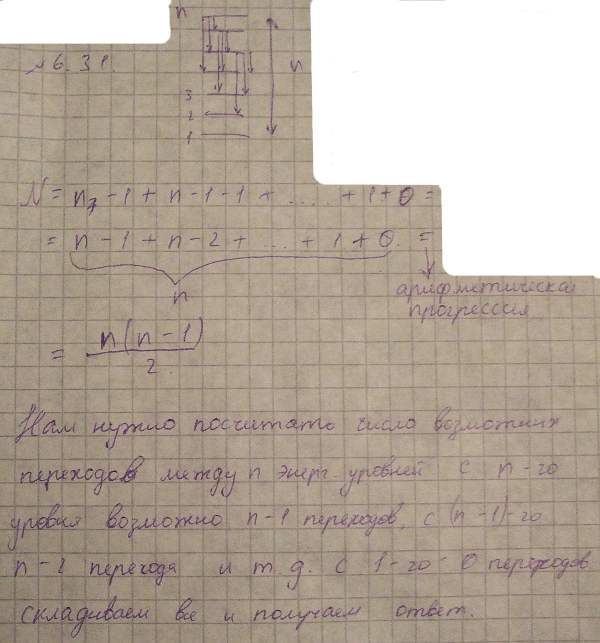 n
№ 6.31.
n
3
2
1
N = n - 1 + n - 1 - 1 + .... + 1 + 0 =
= n - 1 + n - 2 + ... + 1 + 0. =
n
арифметическая
прогрессия
= n(n - 1)
2
Нам нужно посчитать число возможных
переходов между n энерг. уровней с n-го
уровня возможно n-1 переходов, с (n-1)-го
n-2 перехода и т.д. с 1-го - 0 переходов
складываем все и получаем ответ.